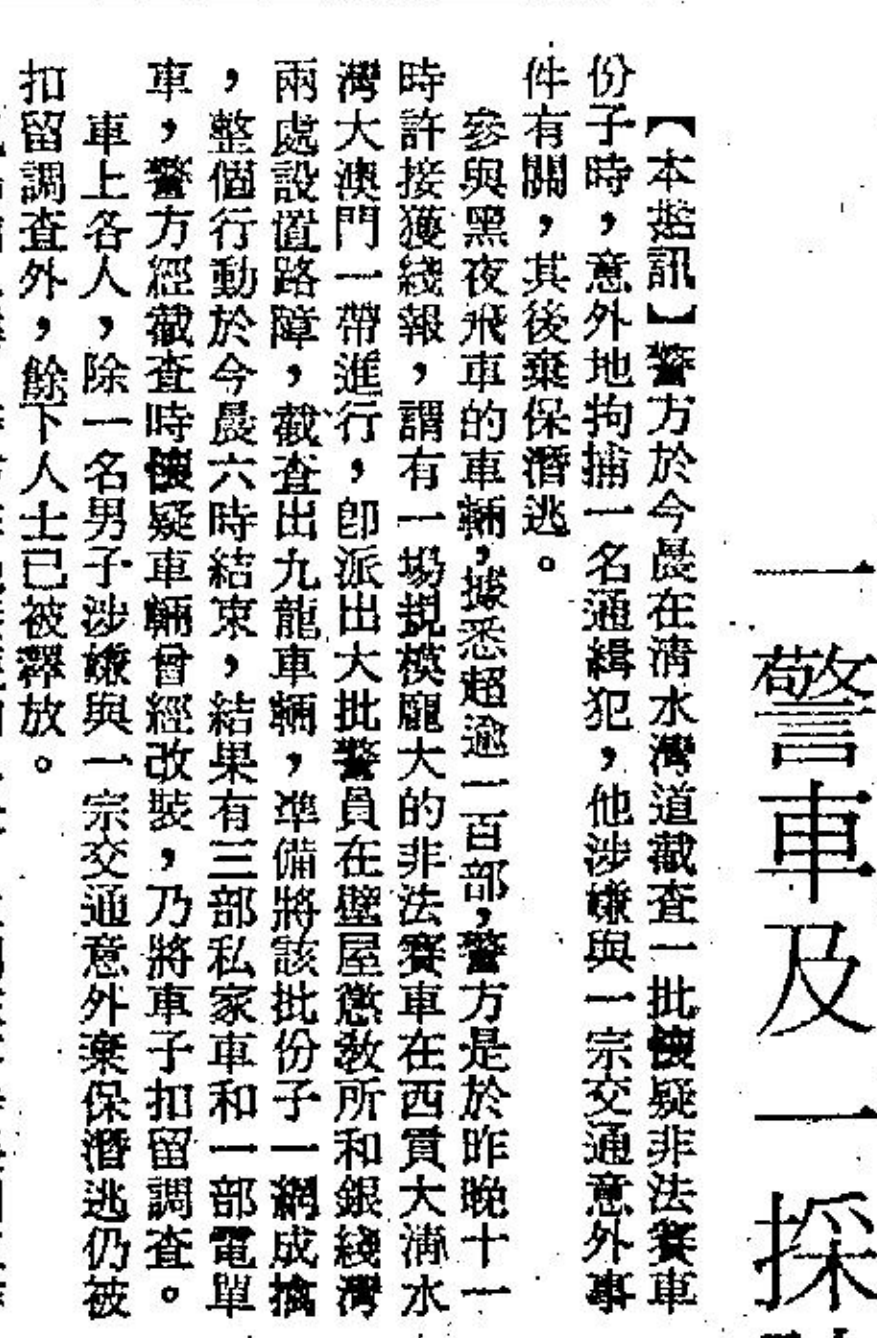 一警車及一採
【本港訊】警方於今晨在清水灣道截查一批懷疑非法賽車
份子時，意外地拘捕一名通緝犯，他涉嫌與一宗交通意外事
件有關，其後棄保潛逃。
參與黑夜飛車的車輛，據悉超逾一百部，警方是於昨晚十一
時許接獲綫報，謂有一場規模龐大的非法賽車在西貢大清水
灣大澳門一帶進行，即派出大批警員在壁屋懲教所和銀綫灣
兩處設置路障，截查出九龍車輛，準備將該批份子一網成擒
，整個行動於今晨六時結束，結果有三部私家車和一部電單
車，警方經截查時懷疑車輛曾經改裝，乃將車子扣留調查。
車上各人，除一名男子涉嫌與一宗交通意外棄保潛逃仍被
扣留調查外，餘下人士已被釋放。